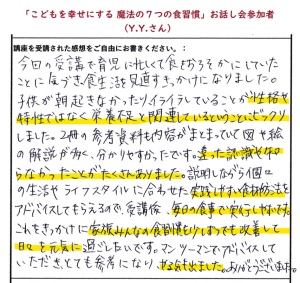 「こどもを幸せにする 魔法の７つの食習慣」お話し会参加者
(Y.Y.さん)
講座を受講された感想をご自由にお書きください。：
今回の受講で育児に忙しくて食をおろそかにしていた
ことに気づき食生活を見直すきっかけになりました。
子供が朝起きなかったりイライラしていることが性格や
特性ではなく栄養不足と関連しているということにビックリ
しました。2冊の参考資料も内容がまとまっていて図や絵
の解説が多く、分かりやすかったです。違った認識や知
らなかったことがたくさんありました。説明しながら個々
の生活やライフスタイルに合わせた実践しやすい食事療法を
アドバイスしてもらえるので、受講後、毎日の食事で実行しやすいです。
これをきっかけに家族みんなの食習慣を少しずつでも改善して
日々を元気に過ごしたいです。マンツーマンでアドバイスして
いただき、とても参考になり、やる気も出ました。ありがとうございました。